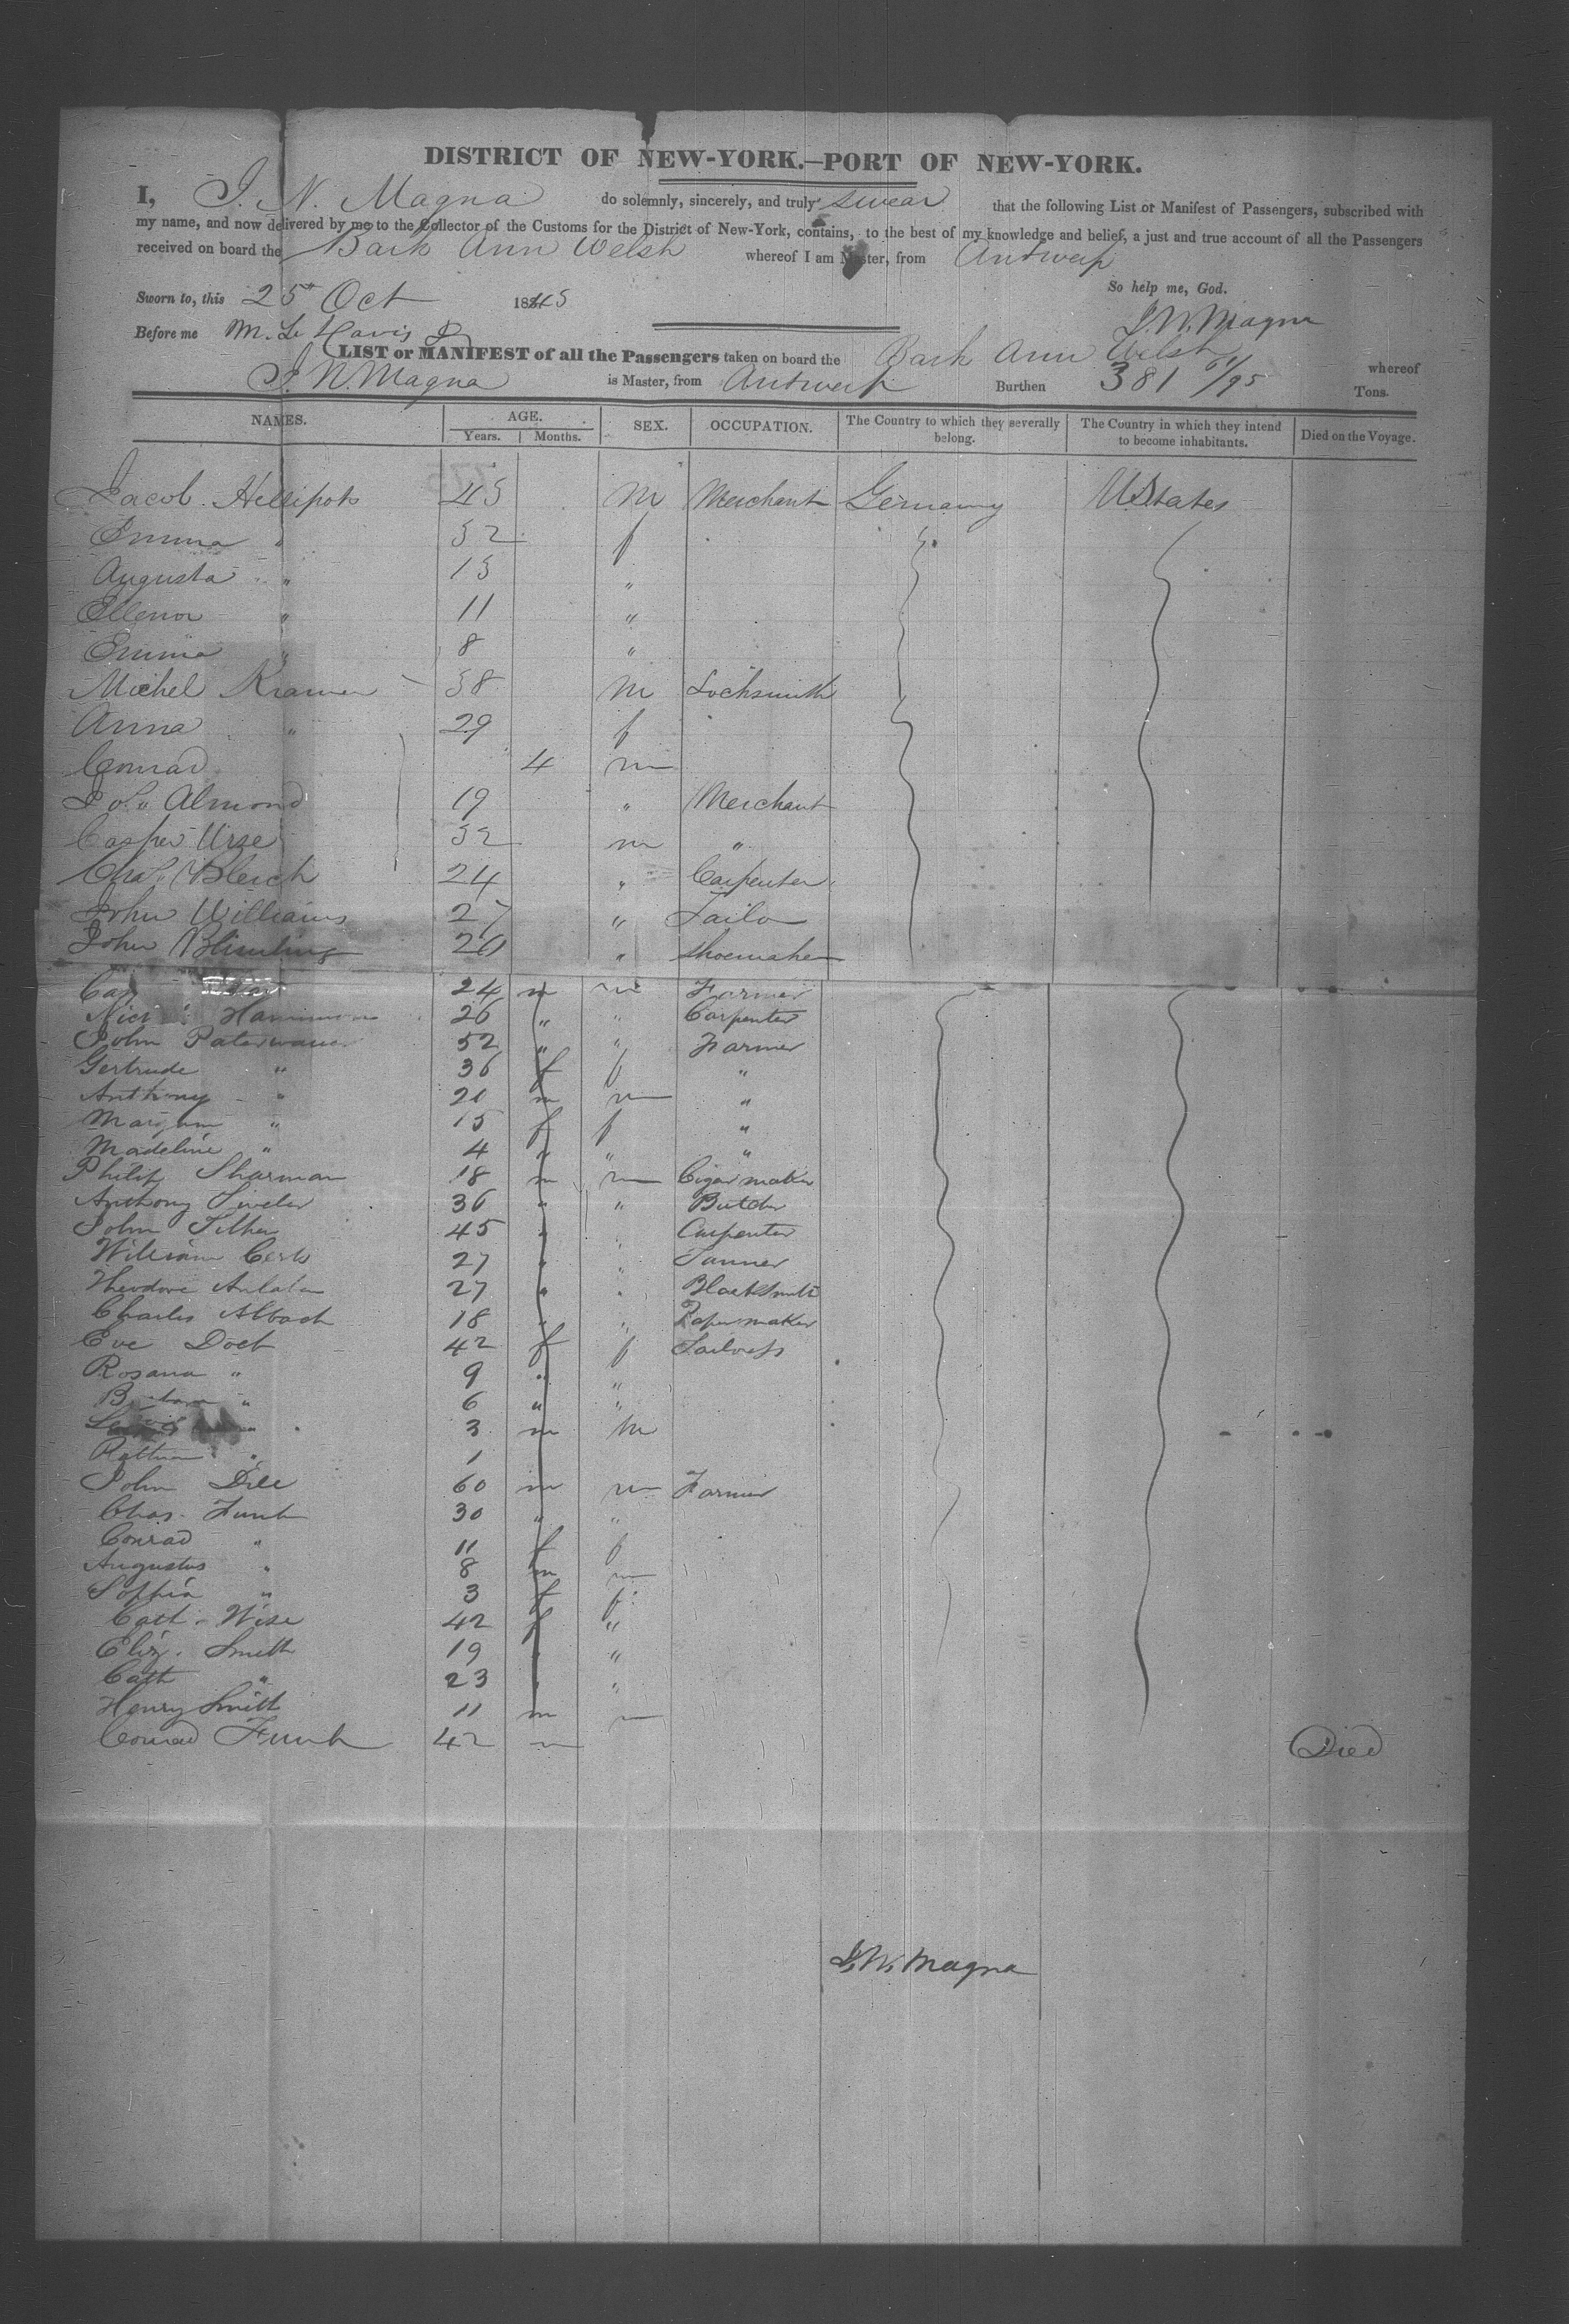 DISTRICT OF NEW-YORK.—PORT OF NEW-YORK.
I, J. N. Magna do solemnly, sincerely, and truly swear that the following List or Manifest of Passengers, subscribed with
my name, and now delivered by me to the Collector of the Customs for the District of New-York, contains, to the best of my knowledge and belief, a just and true account of all the Passengers
received on board the Bark Ann Welsh whereof I am Master, from Antwerp
So help me, God.
Sworn to, this 25th Oct 1845
J. W. Magna
Before me
LIST or MANIFEST of all the Passengers taken on board the Bark Ann Welsh whereof
J. W. Magna is Master, from Antwerp Burthen 381 61/95 Tons.
NAMES. AGE. SEX. OCCUPATION. The Country to which they severally belong. The Country in which they intend to become inhabitants. Died on the Voyage.
Years. Months.
Jacob 45 M Merchant Germany U States
Emma " 32 f
Augusta " 13 "
Ellenor " 11 "
Emma " 8 "
Michel Kramer 38 M Locksmith
Anna " 29 f
Conrad 4 m
Jos. Almond 19 " Merchant
Casper Urze 32 m "
Chas. Bleich 24 " Carpenter
John Williams 27 " Tailor
John 20 " Shoemaker
24 m m Farmer
26 " " Carpenter
John 52 " " Farmer
Gertrude " 36 f f "
Anthony " 21 m m "
" 15 f f "
Madeline " 4 " " "
Philip Sharman 18 m m Cigar maker
Anthony 36 " " Butcher
John 45 " " Carpenter
William 27 " " Tanner
Theodore 27 " " Blacksmith
Charles Albach 18 " " Paper maker
Eve Doet 42 f f Tailoress
Rosana " 9 " "
" 6 " "
" 3 m M
" 1
John Dill 60 m m Farmer
Chas. Funk 30 " "
Conrad " 11 f f
Augustus " 8 m m
Sophia " 3 f f
Cath. Wise 42 f "
Eliz. Smith 19 " "
Cath " 23 " "
Henry Smith 11 m m
Conrad Funk 42 m Died
J. W. Magna